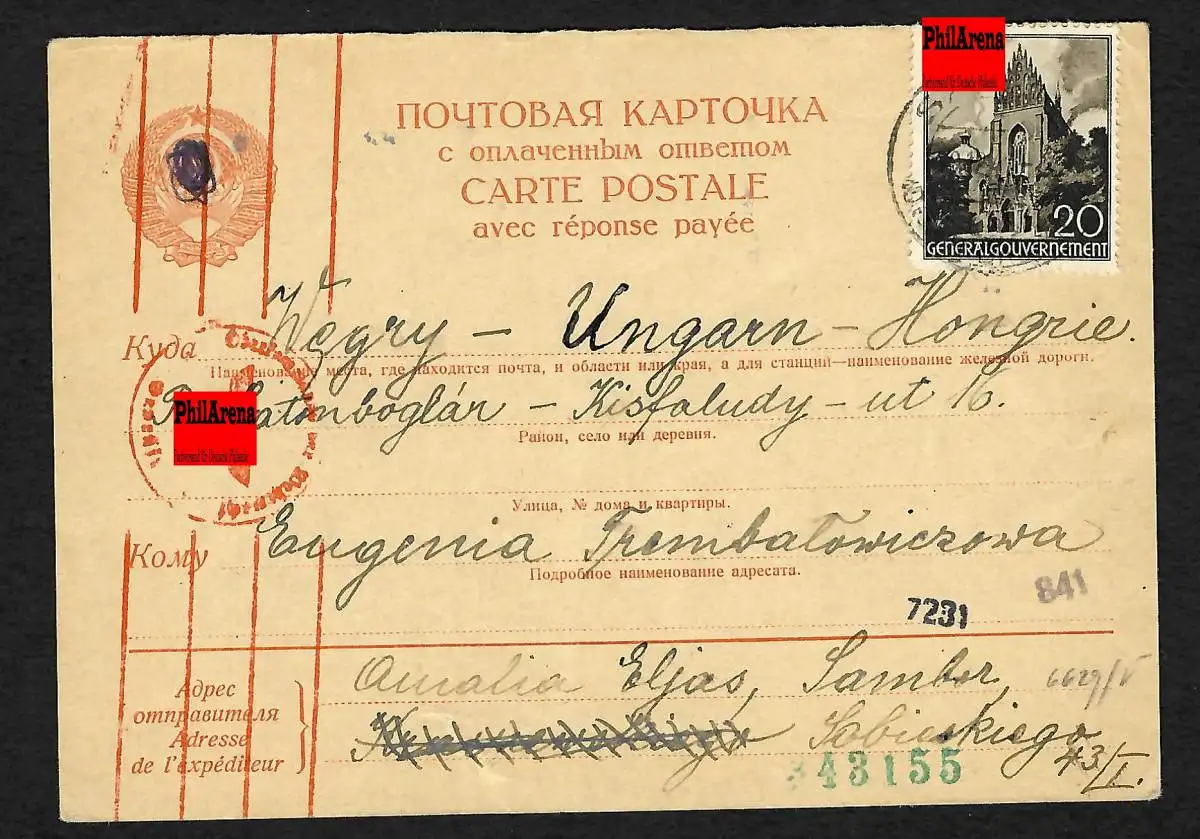 PhilArena
ПОЧТОВАЯ КАРТОЧКА
с оплаченным ответом
CARTE POSTALE
avec réponse payée
20
GENERALGOUVERNEMENT
Węgry – Ungarn – Hongrie.
Куда
Наименование места, где находится почта, и области или края, а для станций—наименование железной дороги.
PhilArena
Kisfaludy – ut 16.
Район, село или деревня.
Улица, № дома и квартиры.
Eugenia Trembałowiczowa
Кому
Подробное наименование адресата.
841
7231
Amalia Eljas, Sambor,
Адрес отправителя
Adresse de l'expéditeur
Sobieskiego
43/I.
43155